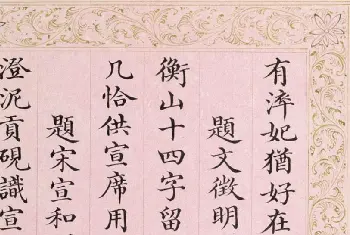 有淬妃猶好在
題文徵明
衡山十四字留
几恰供宣席用
題宋宣和
澄泥貢硯識宣